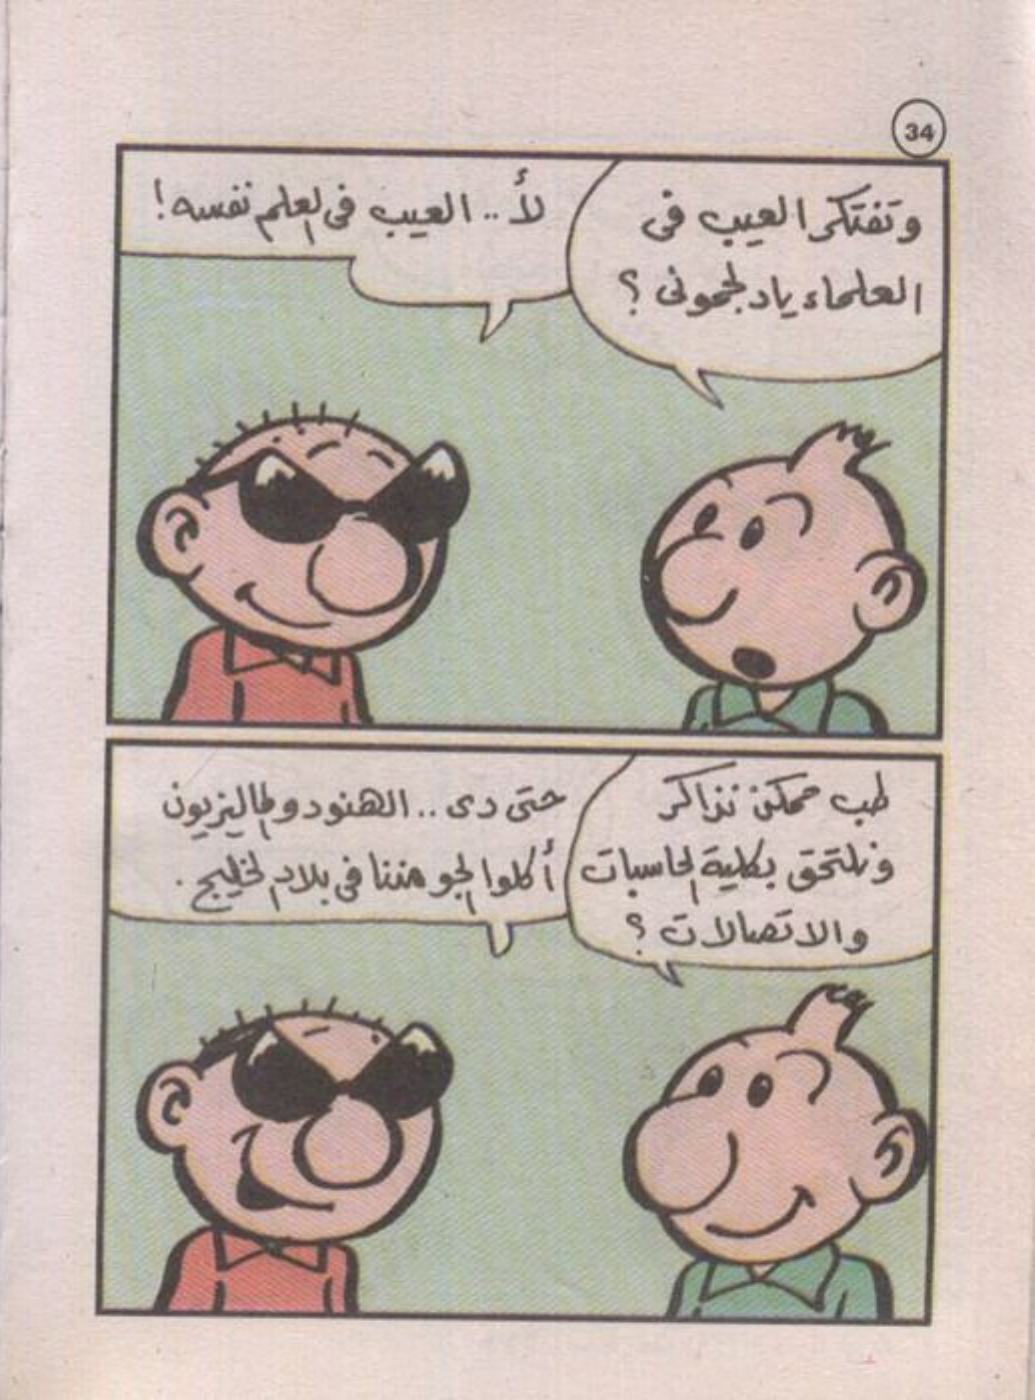 34
وتفتكر العيب فى
العلماء ياد لجمونى ؟
لأ .. العيب فى لعلم نفسه !
طب ممكن نذاكر
ونلتحق بكلية لحاسبات
والاتصالات ؟
حتى دى .. الهنود والماليزيون
أكلوا الجو مننا فى بلاد لخليج .